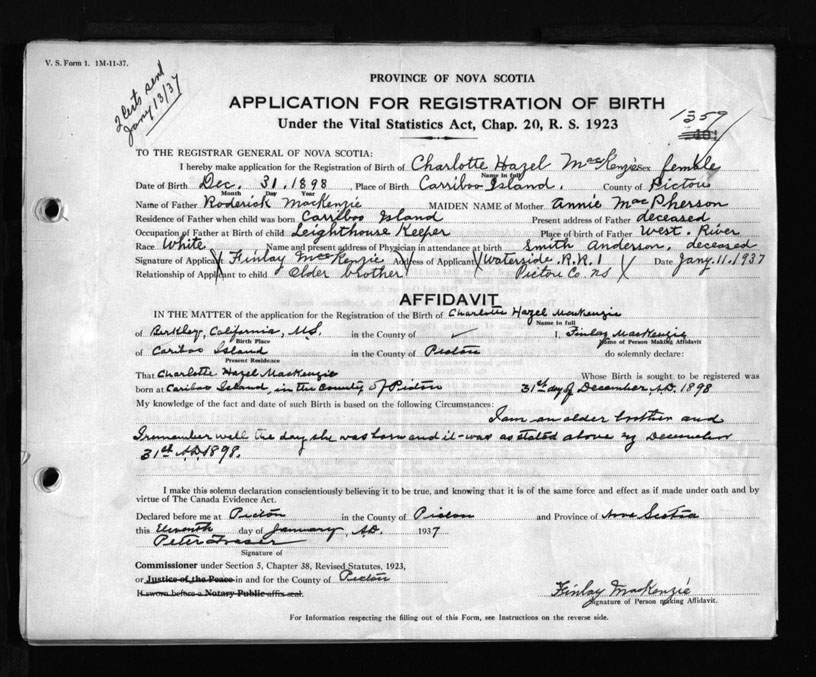 V. S. Form 1. 1M-11-37.
2 Certs sent
Jany 13/37
PROVINCE OF NOVA SCOTIA
APPLICATION FOR REGISTRATION OF BIRTH
Under the Vital Statistics Act, Chap. 20, R. S. 1923
1359
TO THE REGISTRAR GENERAL OF NOVA SCOTIA:
I hereby make application for the Registration of Birth of Charlotte Hazel MacKenzie Sex female
Name in full
Date of Birth Dec. 31. 1898, Place of Birth Carriboo Island. County of Pictou
Month Day Year
Name of Father Roderick MacKenzie MAIDEN NAME of Mother Annie MacPherson
Residence of Father when child was born Carriboo Island Present address of Father deceased
Occupation of Father at Birth of child Leighthouse Keeper Place of birth of Father West. River
Race White Name and present address of Physician in attendance at birth Smith Anderson, deceased
Signature of Applicant X Finlay MacKenzie Address of Applicant X Waterside. R.R. 1 Date Jany. 11. 1937
Relationship of Applicant to child older brother Pictou Co. NS X
AFFIDAVIT
IN THE MATTER of the application for the Registration of the Birth of Charlotte Hazel MacKenzie
Name in full
of Berkley, California, U.S. in the County of ✓ I, Finlay MacKenzie
Birth Place Name of Person Making Affidavit
of Cariboo Island in the County of Pictou do solemnly declare:
Present Residence
That Charlotte Hazel MacKenzie Whose Birth is sought to be registered was
born at Cariboo Island, in the County of Pictou 31st day of December, A.D. 1898
My knowledge of the fact and date of such Birth is based on the following Circumstances:
I am an older brother and
I remember well the day she was born and it was as stated above December
31st A.D. 1898.
I make this solemn declaration conscientiously believing it to be true, and knowing that it is of the same force and effect as if made under oath and by
virtue of The Canada Evidence Act.
Declared before me at Pictou in the County of Pictou and Province of Nova Scotia
this Eleventh day of January, A.D. 1937
Peter Fraser
Signature of
Commissioner under Section 5, Chapter 38, Revised Statutes, 1923,
or Justice of the Peace in and for the County of Pictou
If sworn before a Notary Public affix seal.
Finlay MacKenzie
Signature of Person making Affidavit.
For Information respecting the filling out of this Form, see Instructions on the reverse side.